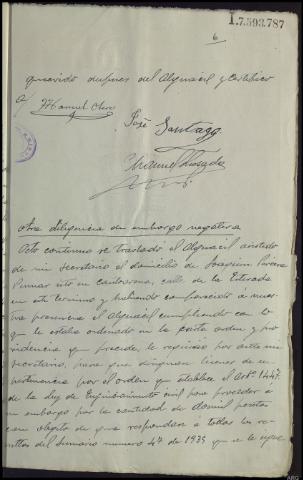 1.7.593.787
6
querido despues del Alguacil y Certifico
Manuel
José Santiago
Manuel
Otra diligencia de embargo negativa
Acto continuo se trasladó el Alguacil asistido
de mi Secretario al domicilio de Joaquin
sito en calle de la Estrada
en este termino y habiendo comparecido a nues
tra presencia el Alguacil cumpliendo con lo
que le estaba ordenado en la carta orden, y pro
videncia que precede, le requirio por ante mi
Secretario, para que bienes de su
pertenencia por el orden que establece el artº 1.447
de la Ley de Enjuiciamiento civil para proceder a
su embargo por la cantidad de dos mil pesetas
con objeto de que respondan a todas las re
sultas del Sumario numero 47 de 1935 que se le sigue